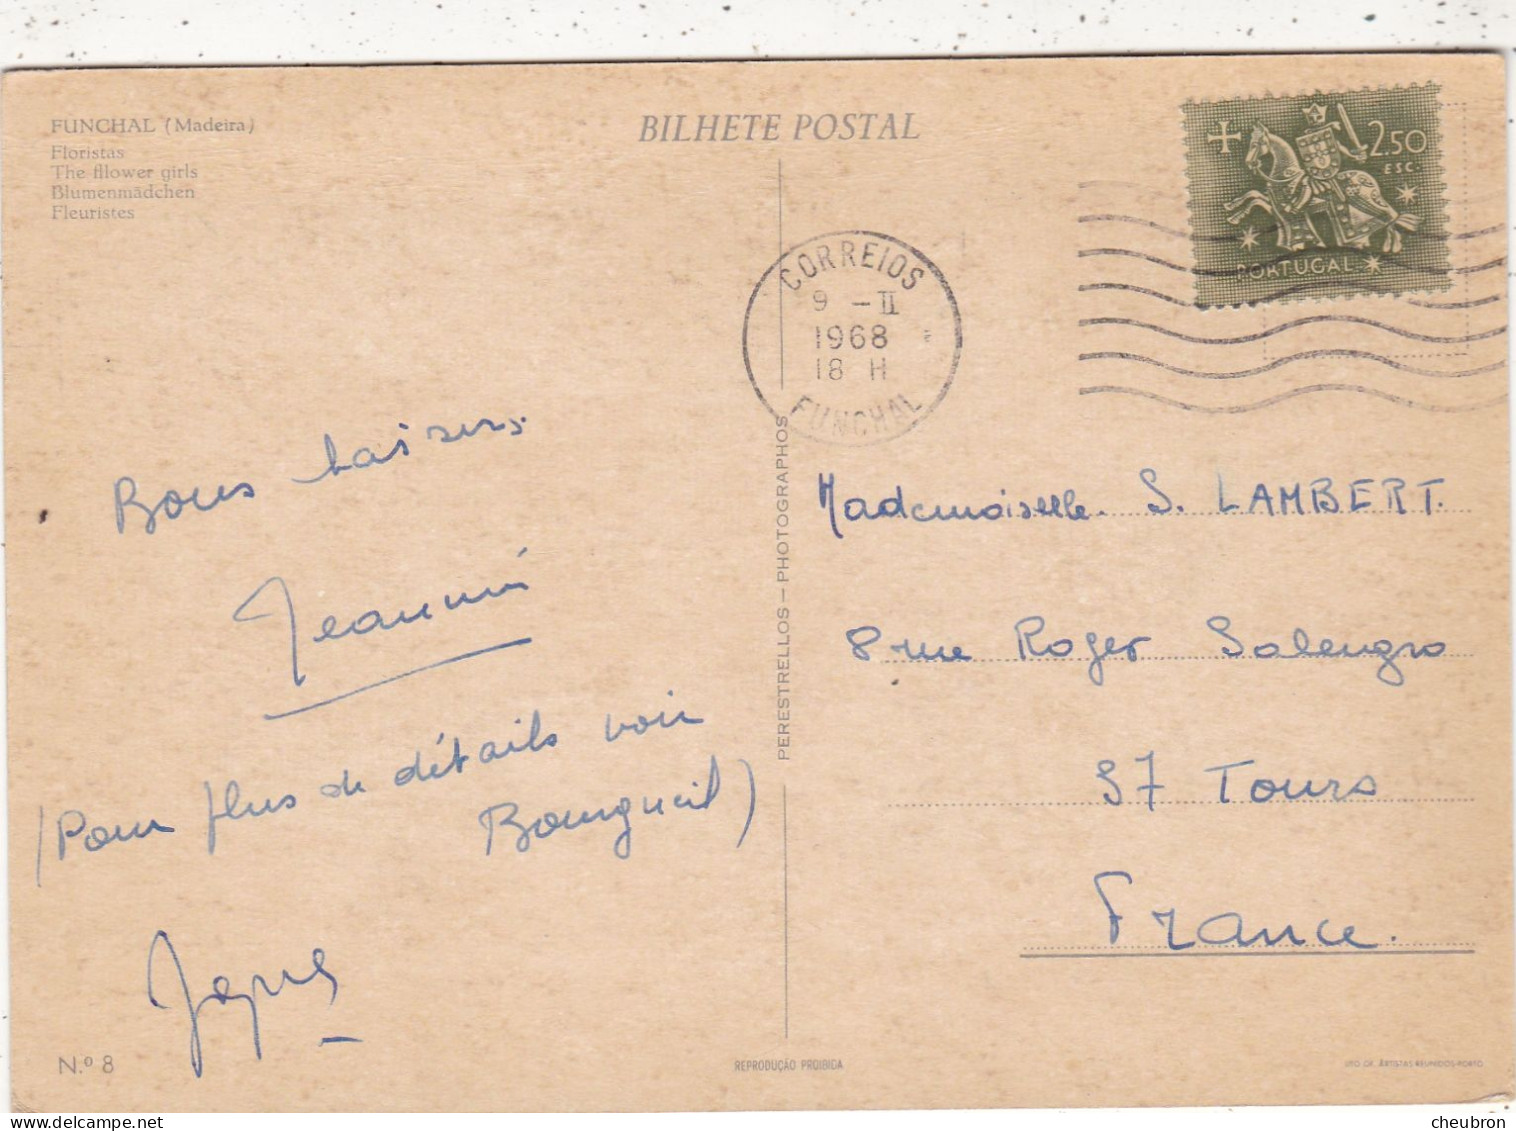 FUNCHAL (Madeira)
Floristas
The flllower girls
Blumenmädchen
Fleuristes
BILHETE POSTAL
2.50
ESC.
PORTUGAL
CORREIOS
9 - II
1968
18 H
FUNCHAL
Bons baisers.
(Pour plus de détails voir
Bourgueil)
N.º 8
PERESTRELLOS - PHOTOGRAPHOS
REPRODUÇÃO PROIBIDA
Mademoiselle. S. LAMBERT.
8 rue Roger Salengro
37 Tours
France.
LITO OF. ARTISTAS REUNIDOS-PORTO
cheubron